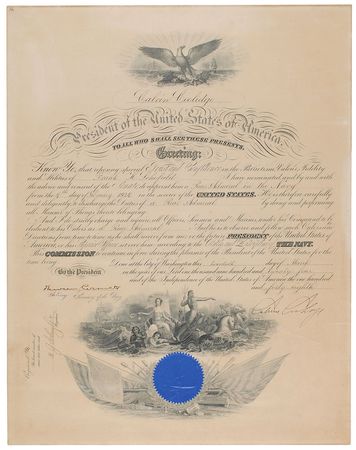 Calvin Coolidge
President of the United States of America.
TO ALL WHO SHALL SEE THESE PRESENTS,
Greeting:
Know Ye, that reposing special Trust and Confidence in the Patriotism, Valor, Fidelity
and Abilities of I have nominated, and by and with
the advice and consent of the Senate, do appoint him a Rear Admiral in the Navy
from the day of in the service of the UNITED STATES. He is therefore carefully
and diligently to discharge the Duties of a Rear Admiral by doing and performing
all Manner of Things thereto belonging.
And I do strictly charge and require all Officers, Seamen and Marines, under his Command to be
obedient to his Orders as a Rear Admiral And he is to observe and follow such Orders and
Directions from time to time as he shall receive from me, or the future PRESIDENT of the United States of
America, or his Superior Officer set over him, according to the THE NAVY.
This COMMISSION to continue in force during the pleasure of the President of the United States for the
time being.
Done at the City of Washington this day of
in the year of our Lord one thousand nine hundred and twenty four
and of the Independence of the United States of America the one hundred
and forty eighth
By the President
Secretary of the Navy.
Calvin Coolidge